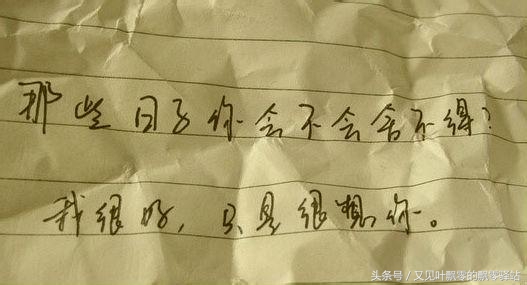 那些日子你会不会舍不得?
我很好,只是很想你。
头条号 / 又见叶飘零的飘零驿站